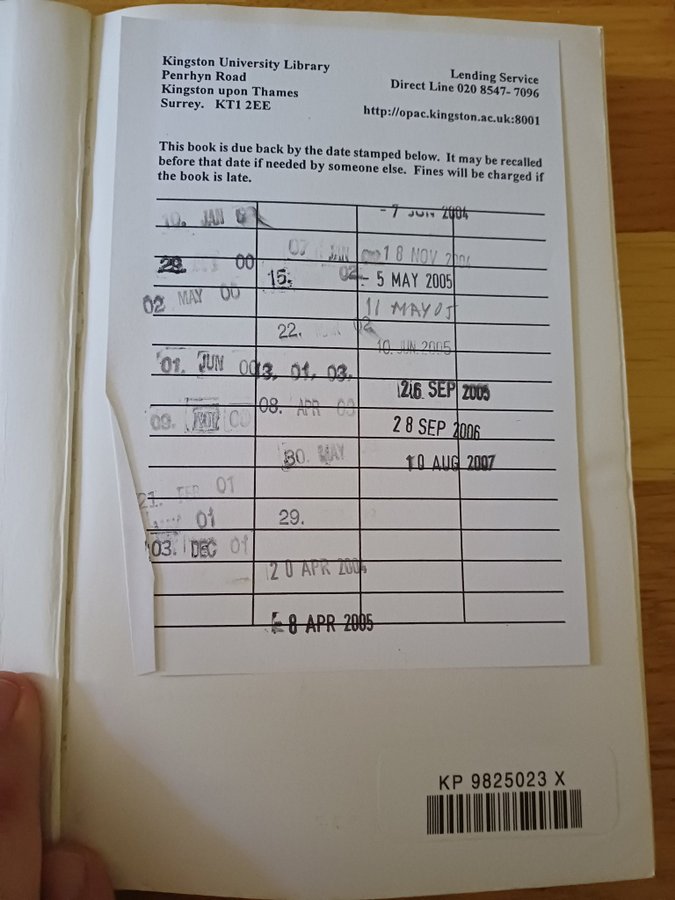 Kingston University Library
Penrhyn Road
Kingston upon Thames
Surrey. KT1 2EE
Lending Service
Direct Line 020 8547- 7096
http://opac.kingston.ac.uk:8001
This book is due back by the date stamped below. It may be recalled
before that date if needed by someone else. Fines will be charged if
the book is late.
10. JAN
28. 00
02 MAY 00
01. JUN 00
09.
01
01
03. DEC 01
07
15. 02
22. 02
13. 01. 03.
08. APR 03
30. MAY
29.
20 APR 2004
- 8 APR 2005
- 7 JUN 2004
18 NOV 2004
- 5 MAY 2005
11 MAY 05
10 JUN 2005
26 SEP 2005
28 SEP 2006
10 AUG 2007
KP 9825023 X